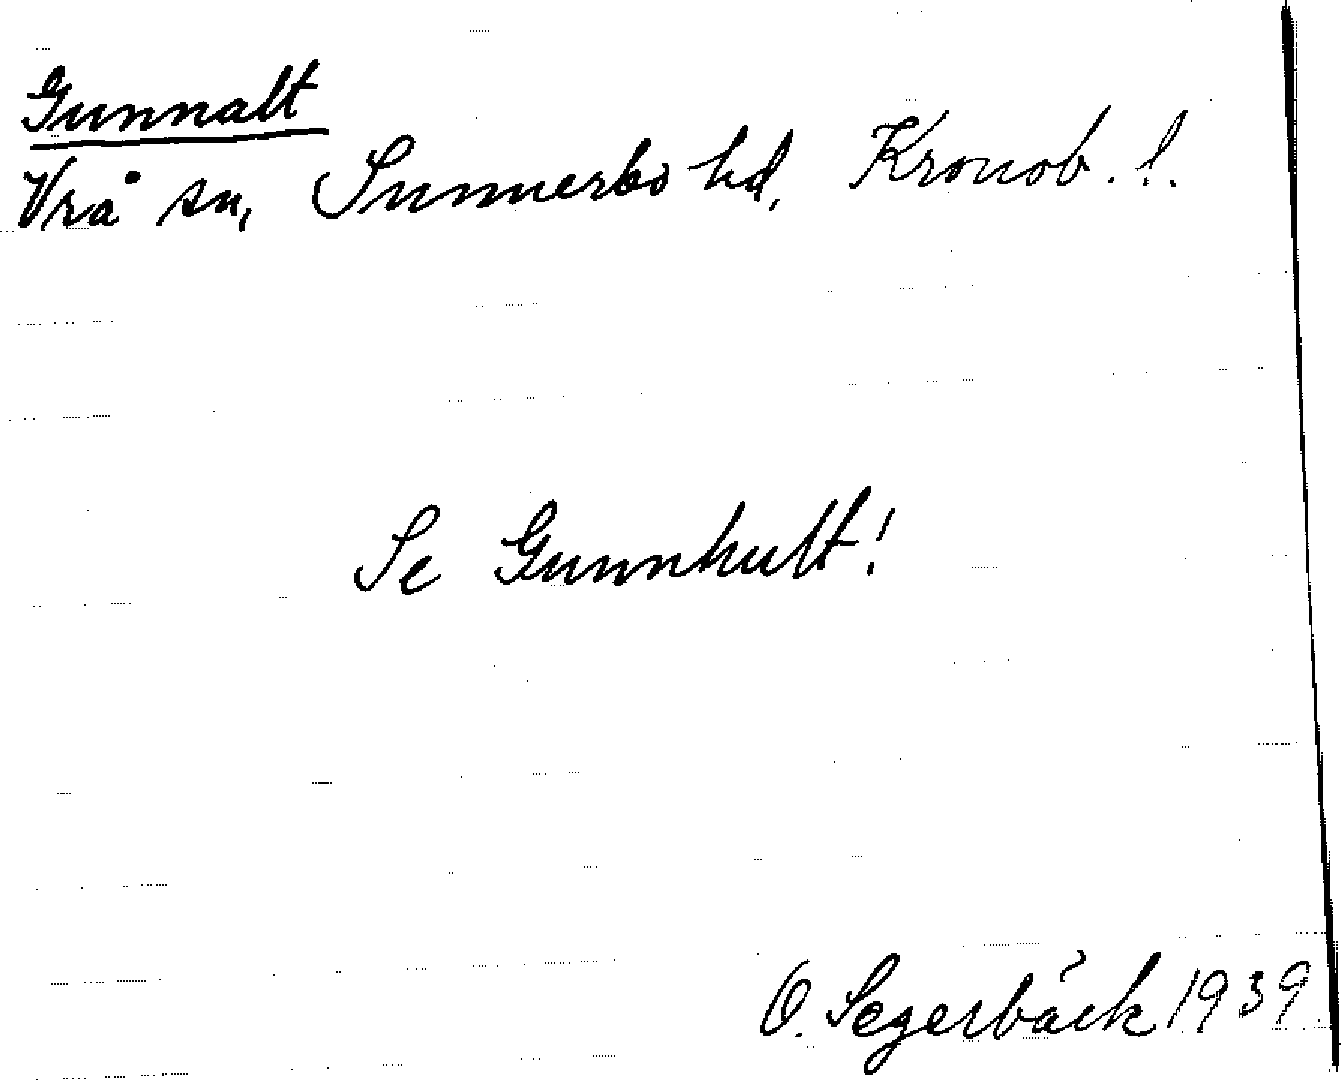 Gunnalt
Vrå sn, Sunnerbo hd, Kronob. l.
Se Gunnhult!
O. Segerbäck 1939